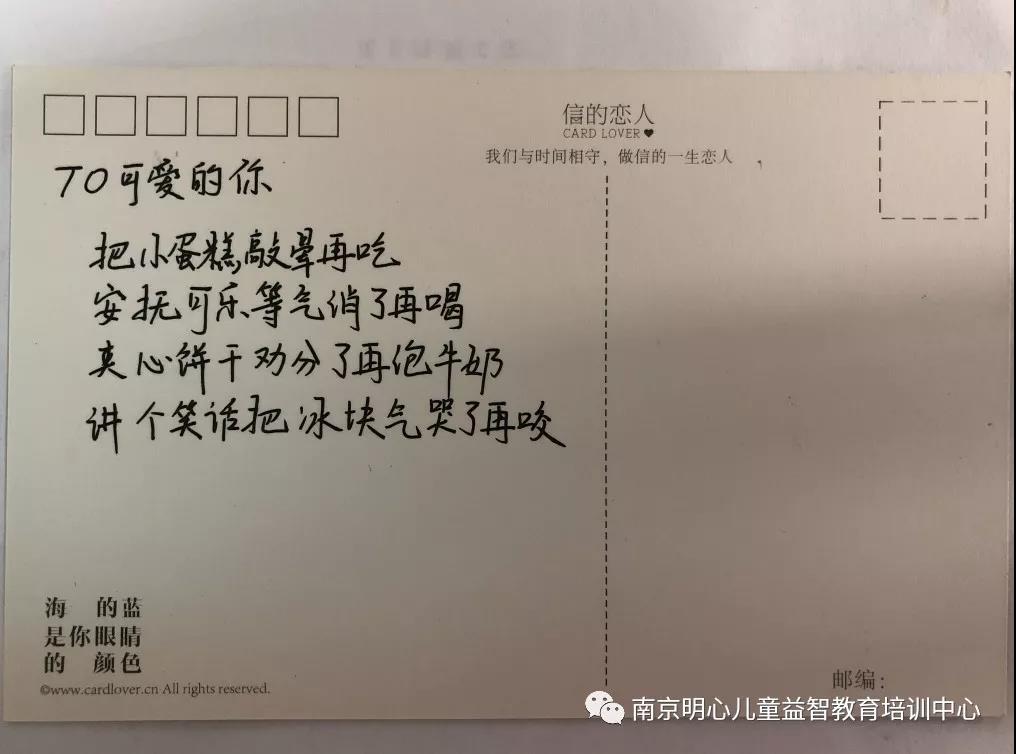 信的恋人
CARD LOVER
我们与时间相守，做信的一生恋人
TO可爱的你
把小蛋糕敲晕再吃
安抚可乐等气消了再喝
夹心饼干劝分了再泡牛奶
讲个笑话把冰块气哭了再咬
海 的蓝
是你眼睛
的 颜色
©www.cardlover.cn All rights reserved.
邮编：
南京明心儿童益智教育培训中心